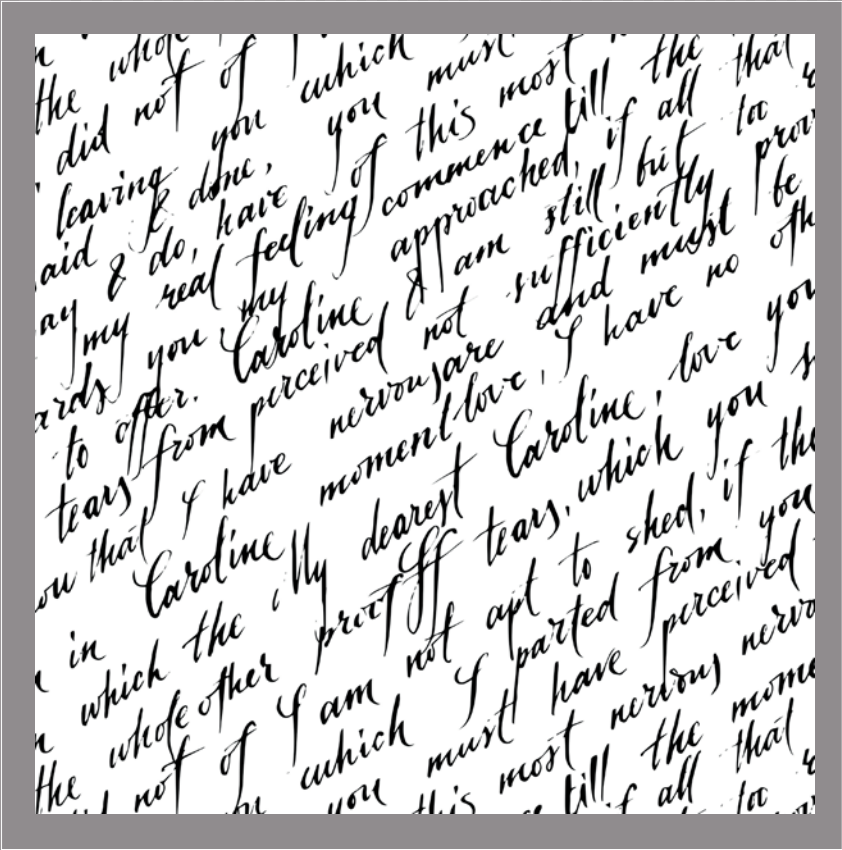 the whole
did not of
leaving you which must
said & done, you
ay & do, have of this most the
my real feeling commence till
ards you, my approached, if all that
to offer. Caroline & am still but too
tears from perceived not sufficiently prov
ou that I have nervous are and must be
in Caroline moment love, I have no oth
which the My dearest Caroline, love you
the whole other proof tears, which you s
did not of I am not apt to shed, if the
you which I parted from you
you must have perceived
this most nervous nervo
till the mome
if all that
too